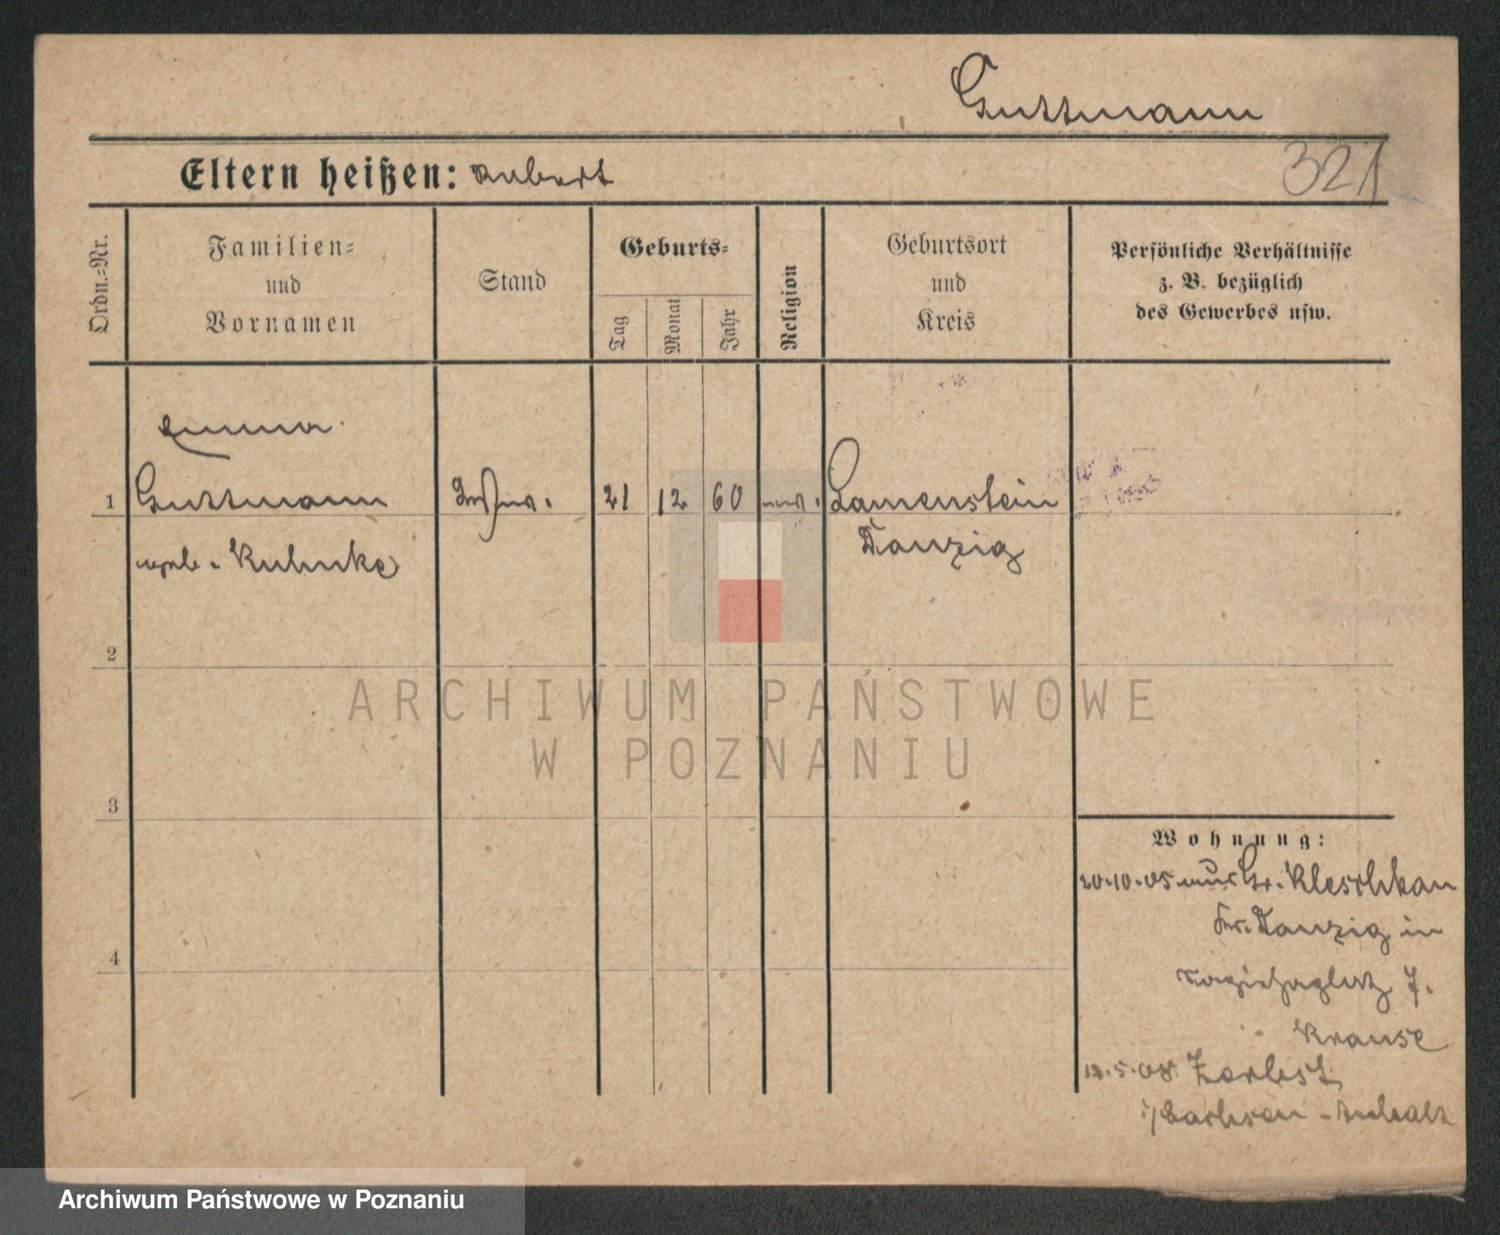 Guttmann
Eltern heißen: Robert
321
Ordn.=Nr.
Familien=
und
Vornamen
Stand
Geburts=
Tag
Monat
Jahr
Religion
Geburtsort
und
Kreis
Persönliche Verhältnisse
z. B. bezüglich
des Gewerbes usw.
Emma
1 Guttmann 21 12 60 Lamenstein
Kuhnke Danzig
2
3
4
ARCHIWUM PAŃSTWOWE
W POZNANIU
Wohnung:
20.10.05 aus Gr. Kleschkau
Kr. Danzig in
7.
Krause
12.5.08 Zerbst
i/ Sachsen - Anhalt
Archiwum Państwowe w Poznaniu